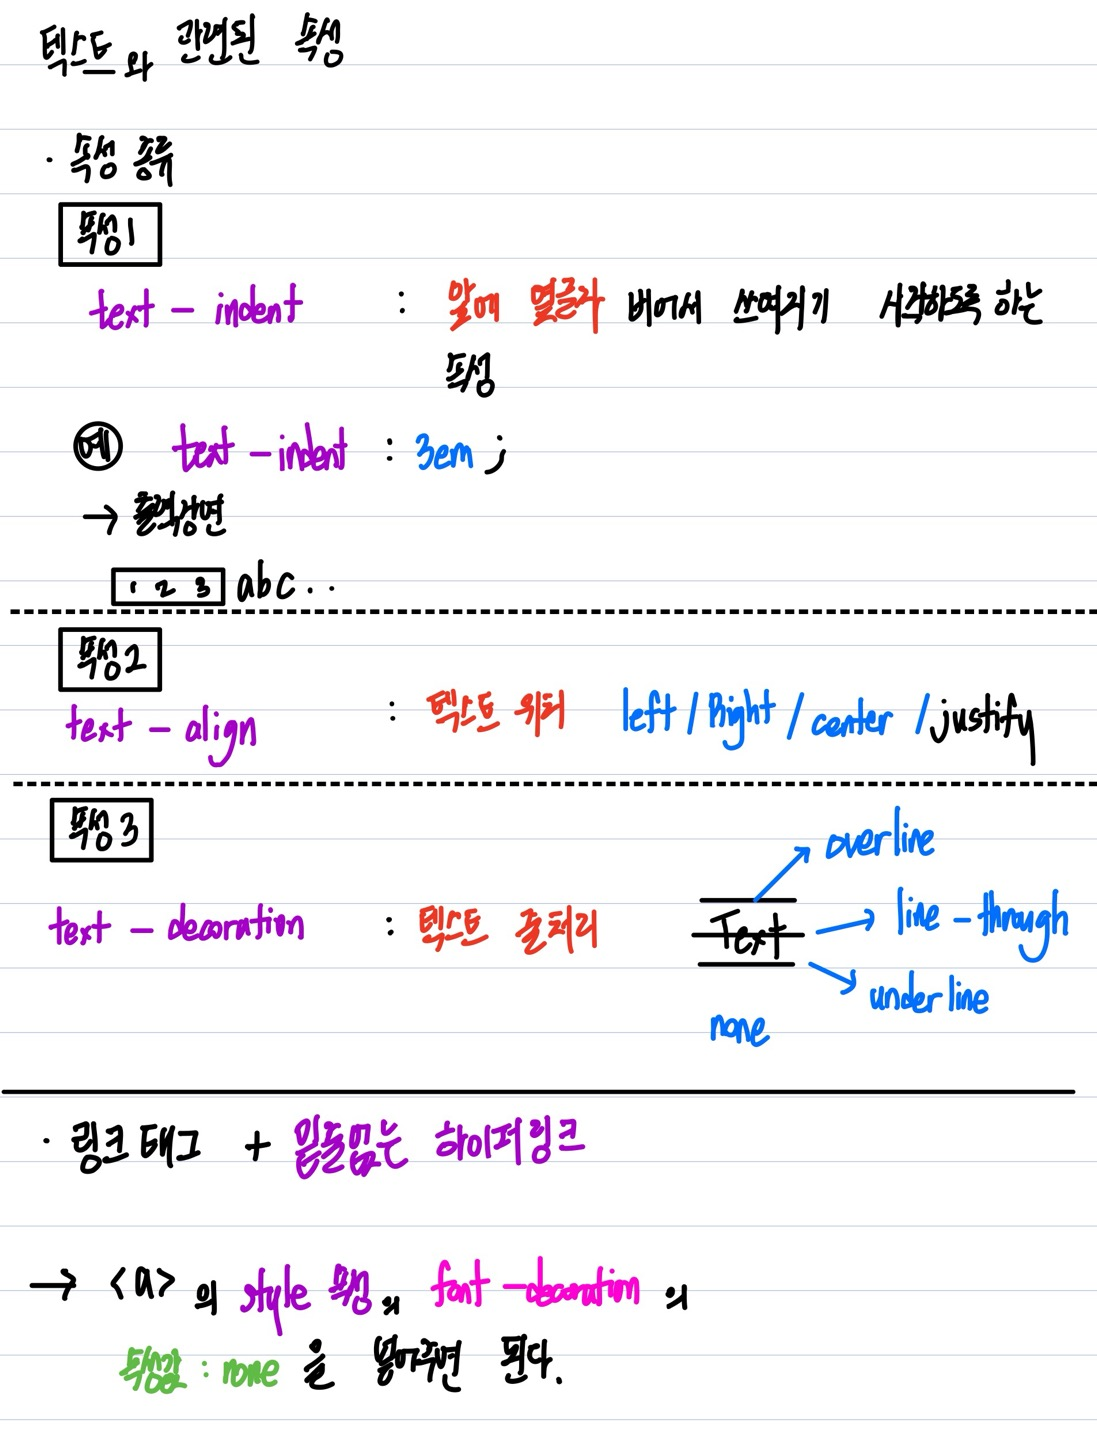 텍스트와 관련된 속성
· 속성 종류
속성1
text - indent : 앞에 몇글자 비어서 쓰여지기 시작하도록 하는
속성
예 text - indent : 3em ;
→ 출력장면
1 2 3 abc . .
속성2
text - align : 텍스트 위치 left / Right / center / justify
속성3
overline
text - decoration : 텍스트 줄처리 Text line - through
underline
none
· 링크 태그 + 밑줄없는 하이퍼링크
→ <a> 의 style 속성의 font - decoration 의
속성값 : none 을 붙여주면 된다.